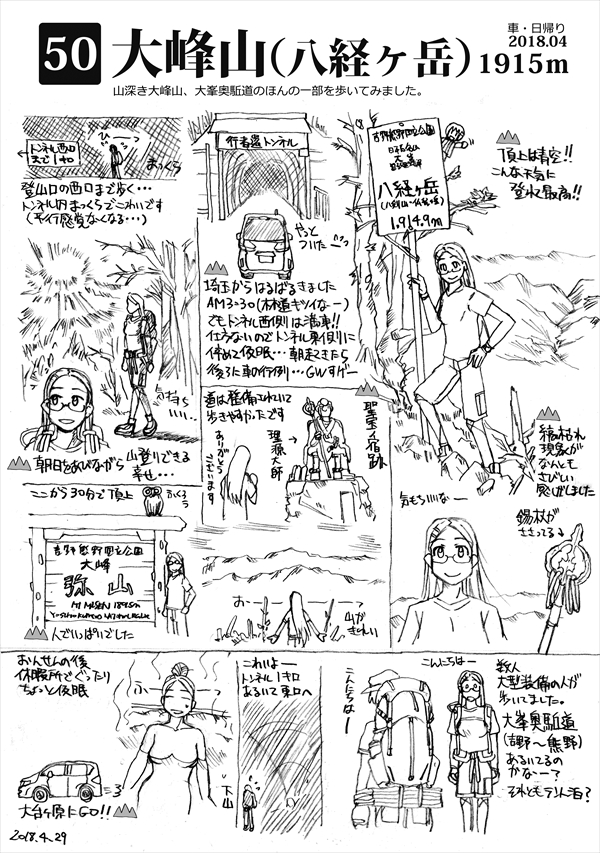 50
大峰山(八経ヶ岳)
車・日帰り
2018.04
1915m
山深き大峰山、大峯奥駈道のほんの一部を歩いてみました。
トンネル西口
まで1キロ
まっくら
登山口の西口まで歩く…
トンネル内まっくらでこわいです
(平行感覚なくなる…)
行者還トンネル
やっと
ついた
埼玉からはるばるきました
AM3:30(林道キツイなー)
でもトンネル西側は満車!!
仕方ないのでトンネル東側に
停めて仮眠…朝起きたら
後ろに車の行列…GWすげー
吉野熊野国立公園
日本百名山
八経ヶ岳
1,914.9m
頂上は青空!!
こんな天気に
登れて最高!!
気持ち
いい…
朝日をあびながら山登りできる
幸せ…
道は整備されていて
歩きやすかったです
ありがとう
ございます
理源大師
聖宝ノ宿跡
縞枯れ
現象が
なんとも
さびしい
感じがしました
ここから30分で頂上
ふくろう
吉野熊野国立公園
大峰
弥山
MT MISEN 1895m
人でいっぱいでした
おーーーーー
山が
きれい
気もちいいなー
錫杖が
ささってる
おんせんの後
休暇所でぐったり
ちょっと仮眠
大台ヶ原にGO!!
2018.4.29
これはー
トンネル1キロ
あるいて東口へ
下山
こんにちはー
こんにちはー
数人
大型装備の人が
歩いてました。
大峯奥駈道
(吉野〜熊野)
あるいてるの
かなー?
それともテント泊?